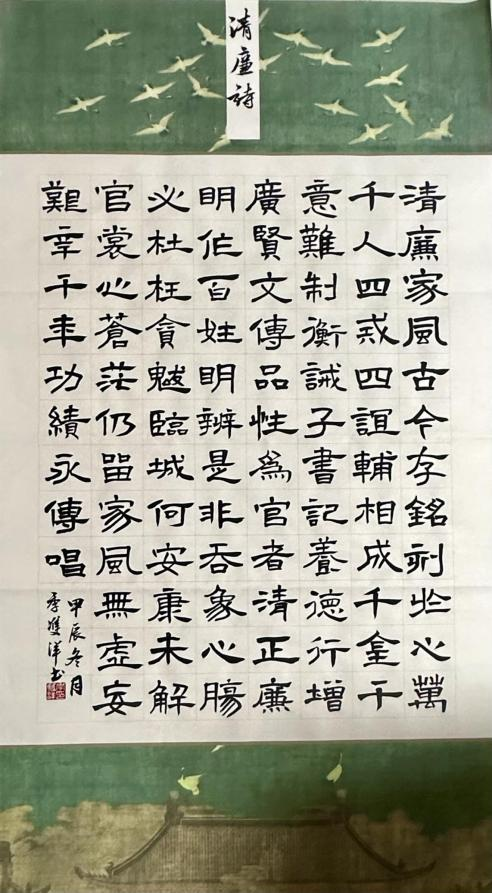 清廉詩
清廉家風古今存銘刻於心萬
千人四戒四誼輔相成千金干
意難制衡誡子書記養德行增
廣賢文傳品性為官者清正廉
明作百姓明辨是非吞象心腸
必杜枉貪魃臨城何安康未解
官裳心蒼茫仍留家風無虛妄
艱辛千年功績永傳唱
甲辰冬月
季雙洋書